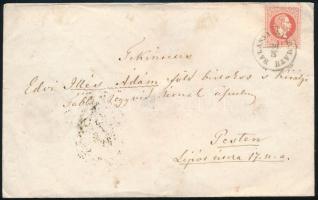 Tekintetes
Edvi Illés Ádám földbirtokos s királyi
táblai jegyző úrnak
Pesten
Lipót utcza 17. sz. a.